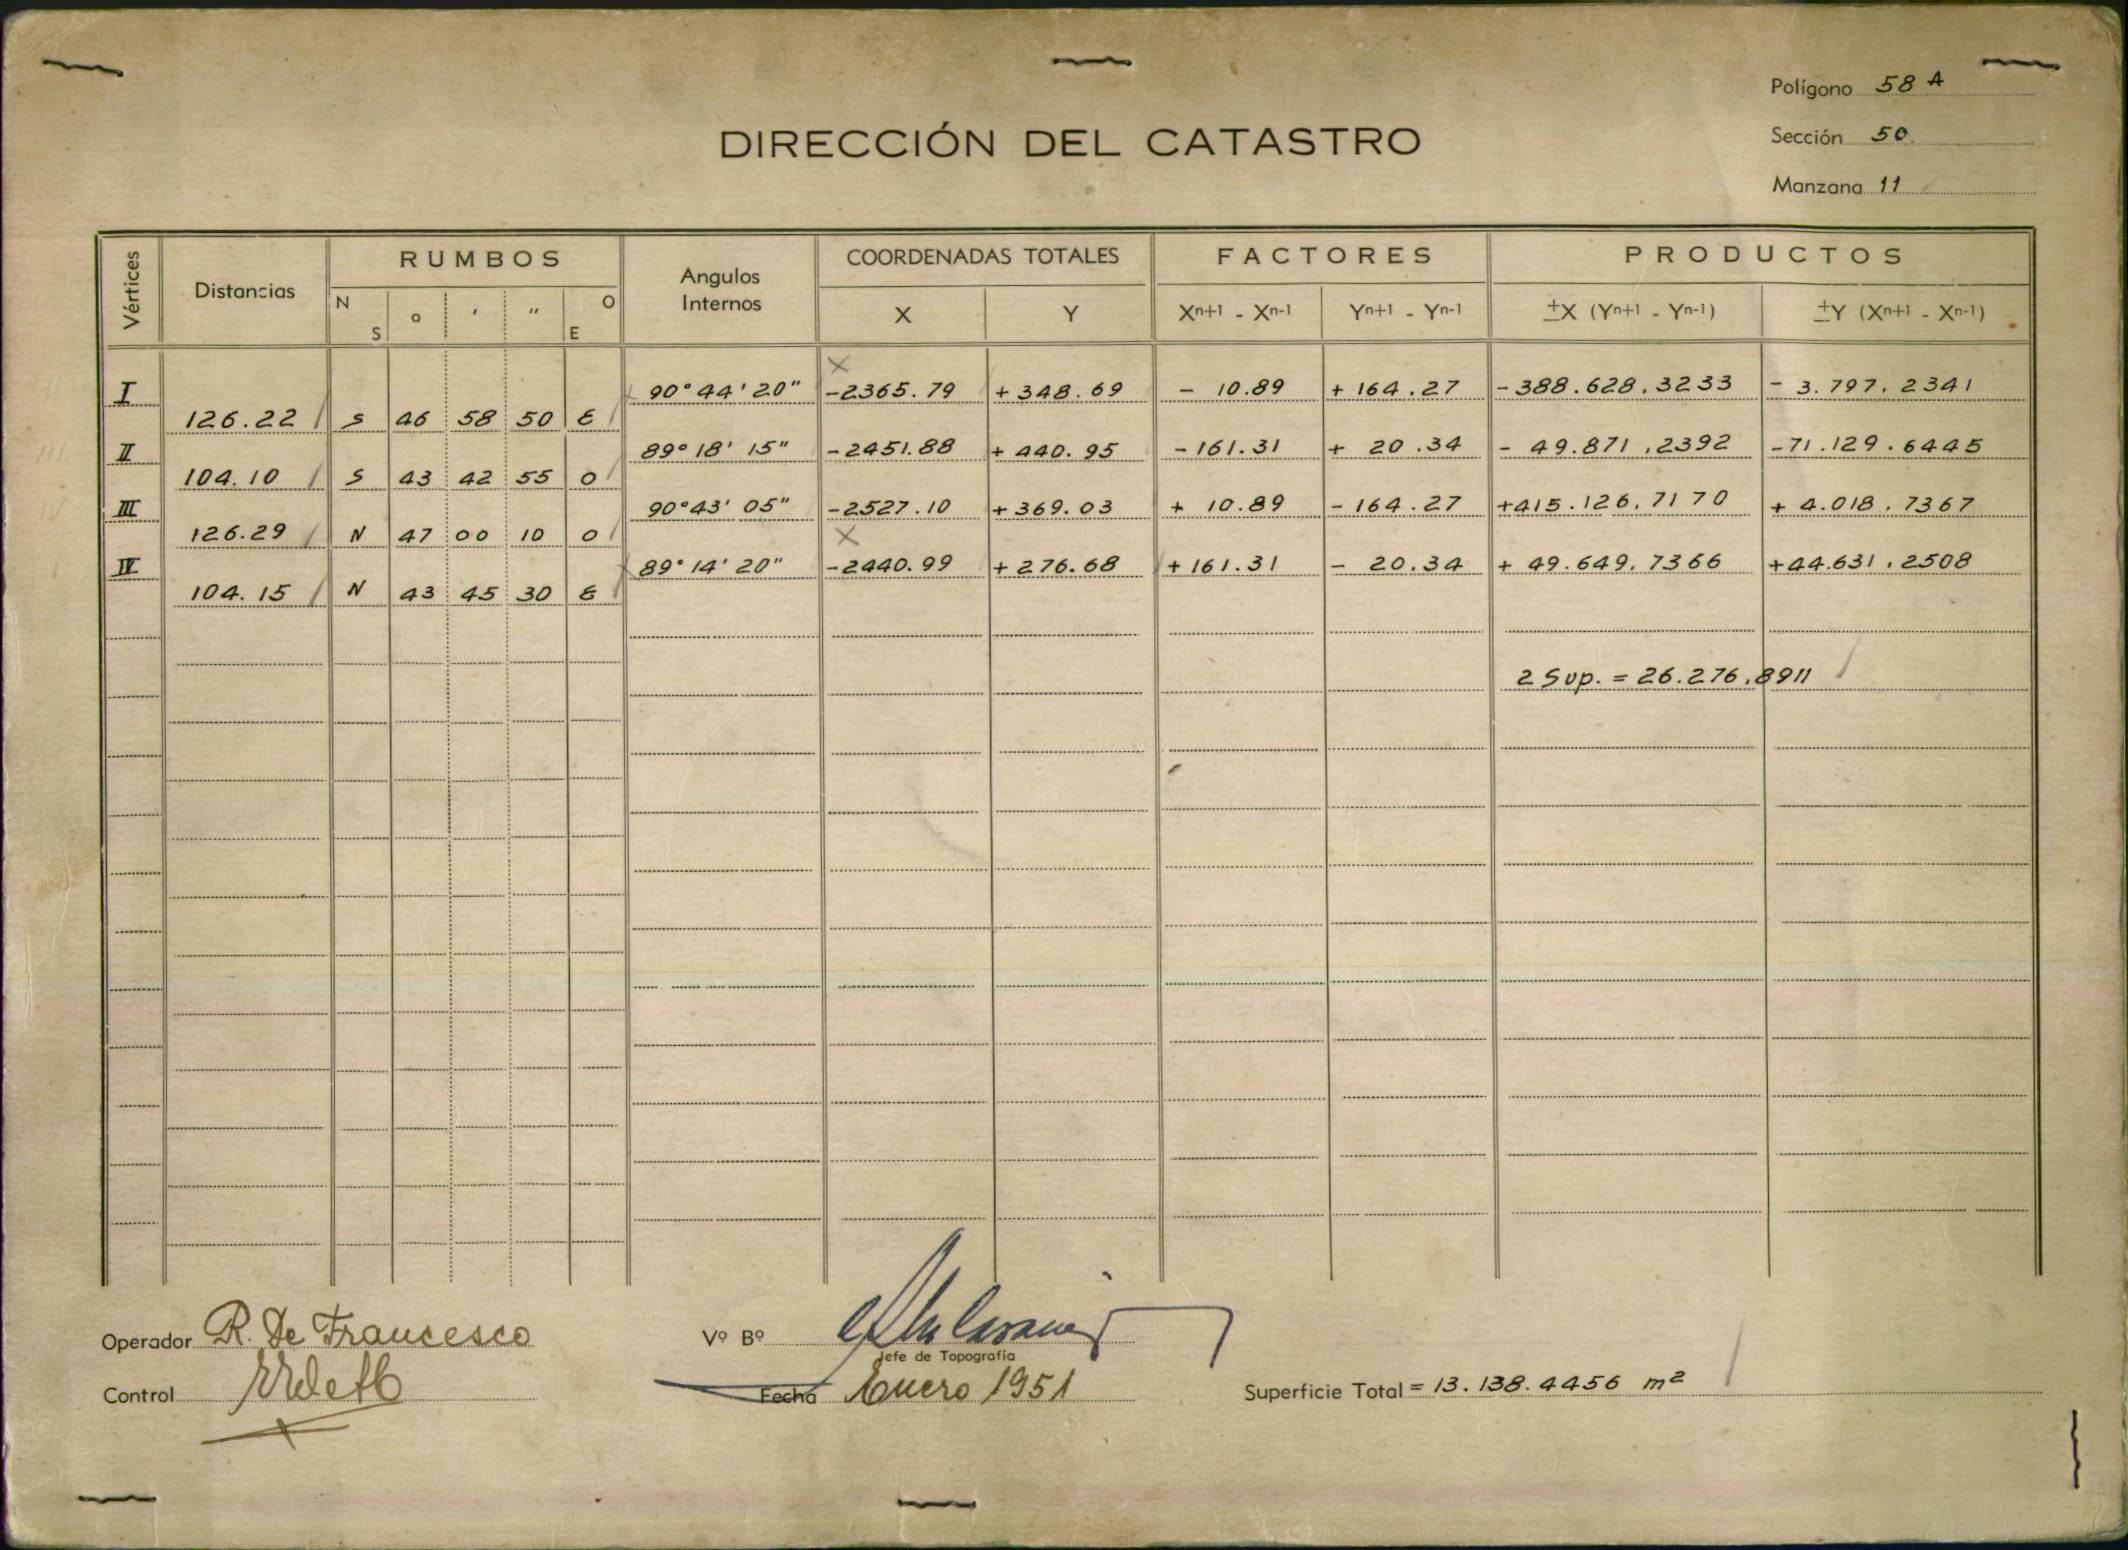 Polígono 58 A
DIRECCIÓN DEL CATASTRO
Sección 50
Manzana 11
Vértices Distancias RUMBOS Angulos Internos COORDENADAS TOTALES FACTORES PRODUCTOS
N S ° ' " O E X Y Xn+1 - Xn-1 Yn+1 - Yn-1 ±X (Yn+1 - Yn-1) ±Y (Xn+1 - Xn-1)
I 90°44'20" -2365.79 +348.69 - 10.89 +164.27 -388.628.3233 - 3.797.2341
126.22 S 46 58 50 E
II 89°18'15" -2451.88 +440.95 -161.31 + 20.34 - 49.871.2392 -71.129.6445
104.10 S 43 42 55 O
III 90°43'05" -2527.10 +369.03 + 10.89 -164.27 +415.126.7170 + 4.018.7367
126.29 N 47 00 10 O
IV 89°14'20" -2440.99 +276.68 +161.31 - 20.34 + 49.649.7366 +44.631.2508
104.15 N 43 45 30 E
2 Sup. = 26.276.8911
Operador R. De Francesco
Vº Bº
Jefe de Topografía
Control
Fecha Enero 1951
Superficie Total = 13.138.4456 m²